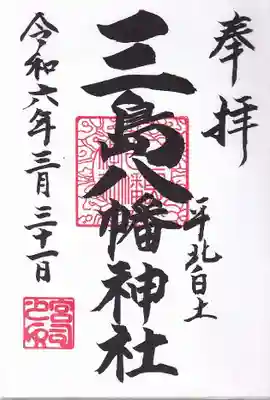 奉拝
平北白土
三島八幡神社
令和六年三月三十一日